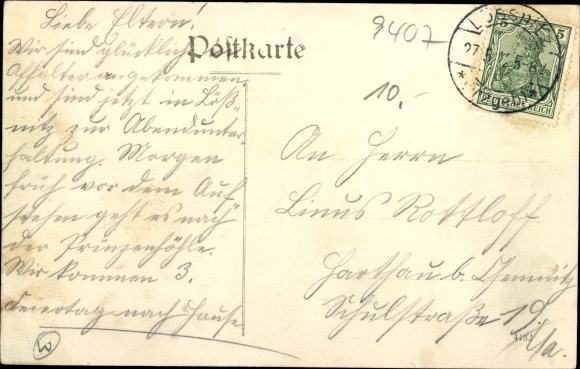 Liebe Eltern!
Wir sind glücklich in
Affalter angekommen
und sind jetzt in Löß-
nitz zur Abendunter
haltung. Morgen
früh vor dem Auf-
stehen geht es nach
der Prinzenhöhle.
Wir kommen 3.
Feiertag nach Hause
Postkarte
9407
10.-
LÖSSNITZ
27.5.
5
REICH
An Herrn
Linus Rottloff
Harthau b. Chemnitz
Schulstraße 19.
4193
3